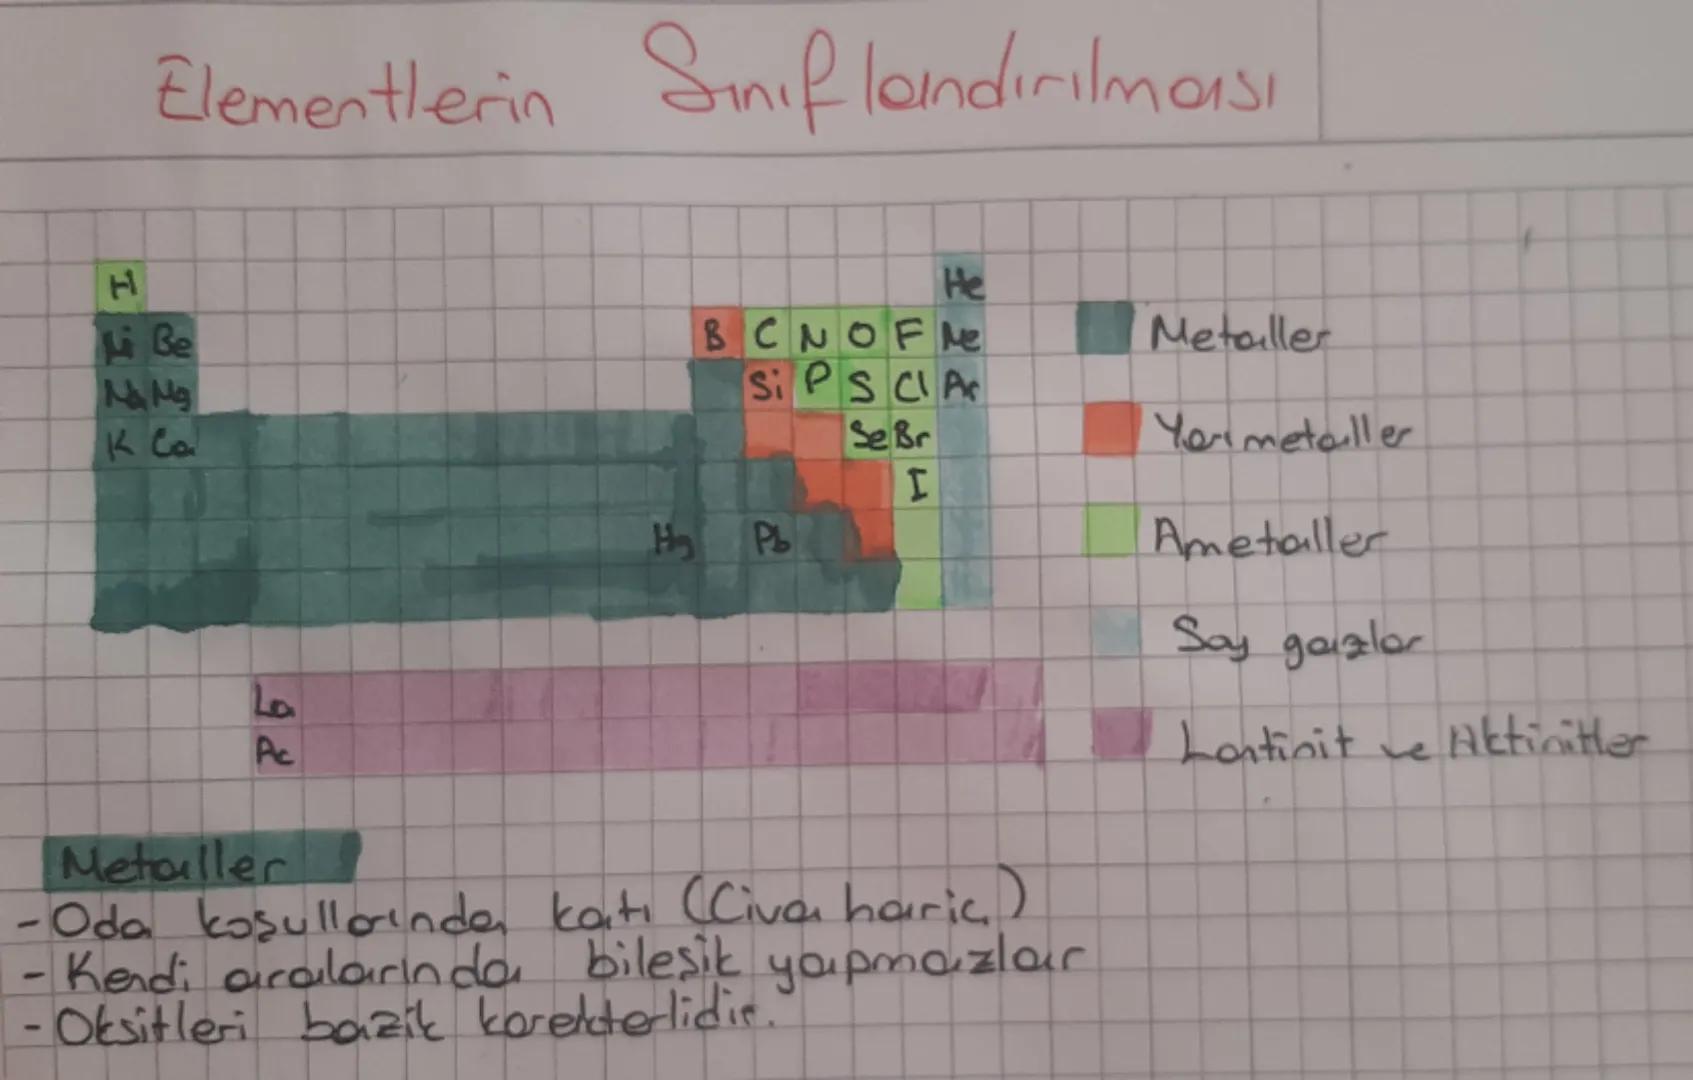 Elementlerin Sınıflandırılması
H He
Li Be B C N O F Ne
Na Mg Si P S Cl Ar
K Ca Se Br
I
Hg Pb
La
Ac
Metaller
Yarı metaller
Ametaller
Soy gazlar
Lantinit ve Aktinitler
Metaller
-Oda koşullarında katı (Civa hariç)
-Kendi aralarında bileşik yapmazlar
-Oksitleri bazik karekterlidir.